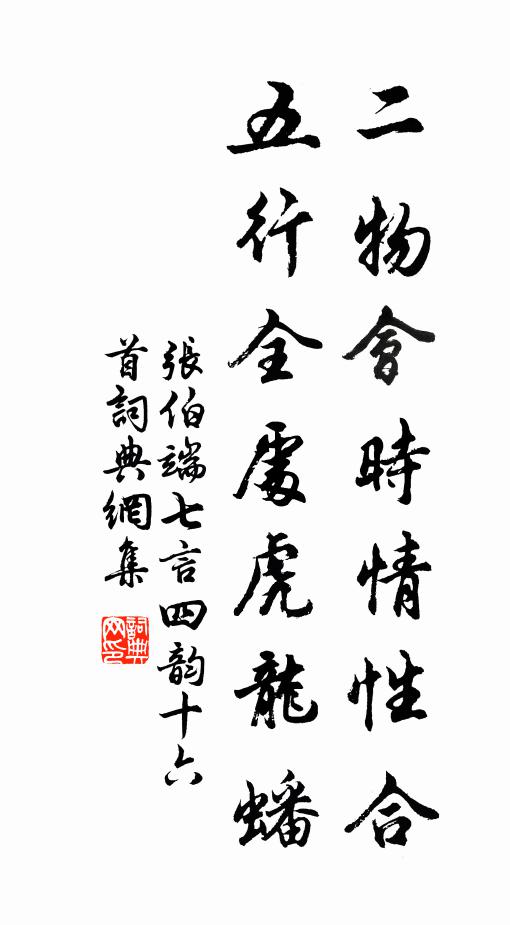 二物會時情性合
五行全處虎龍蟠
張伯端七言四韵十六
首詞典網集
詞典网印